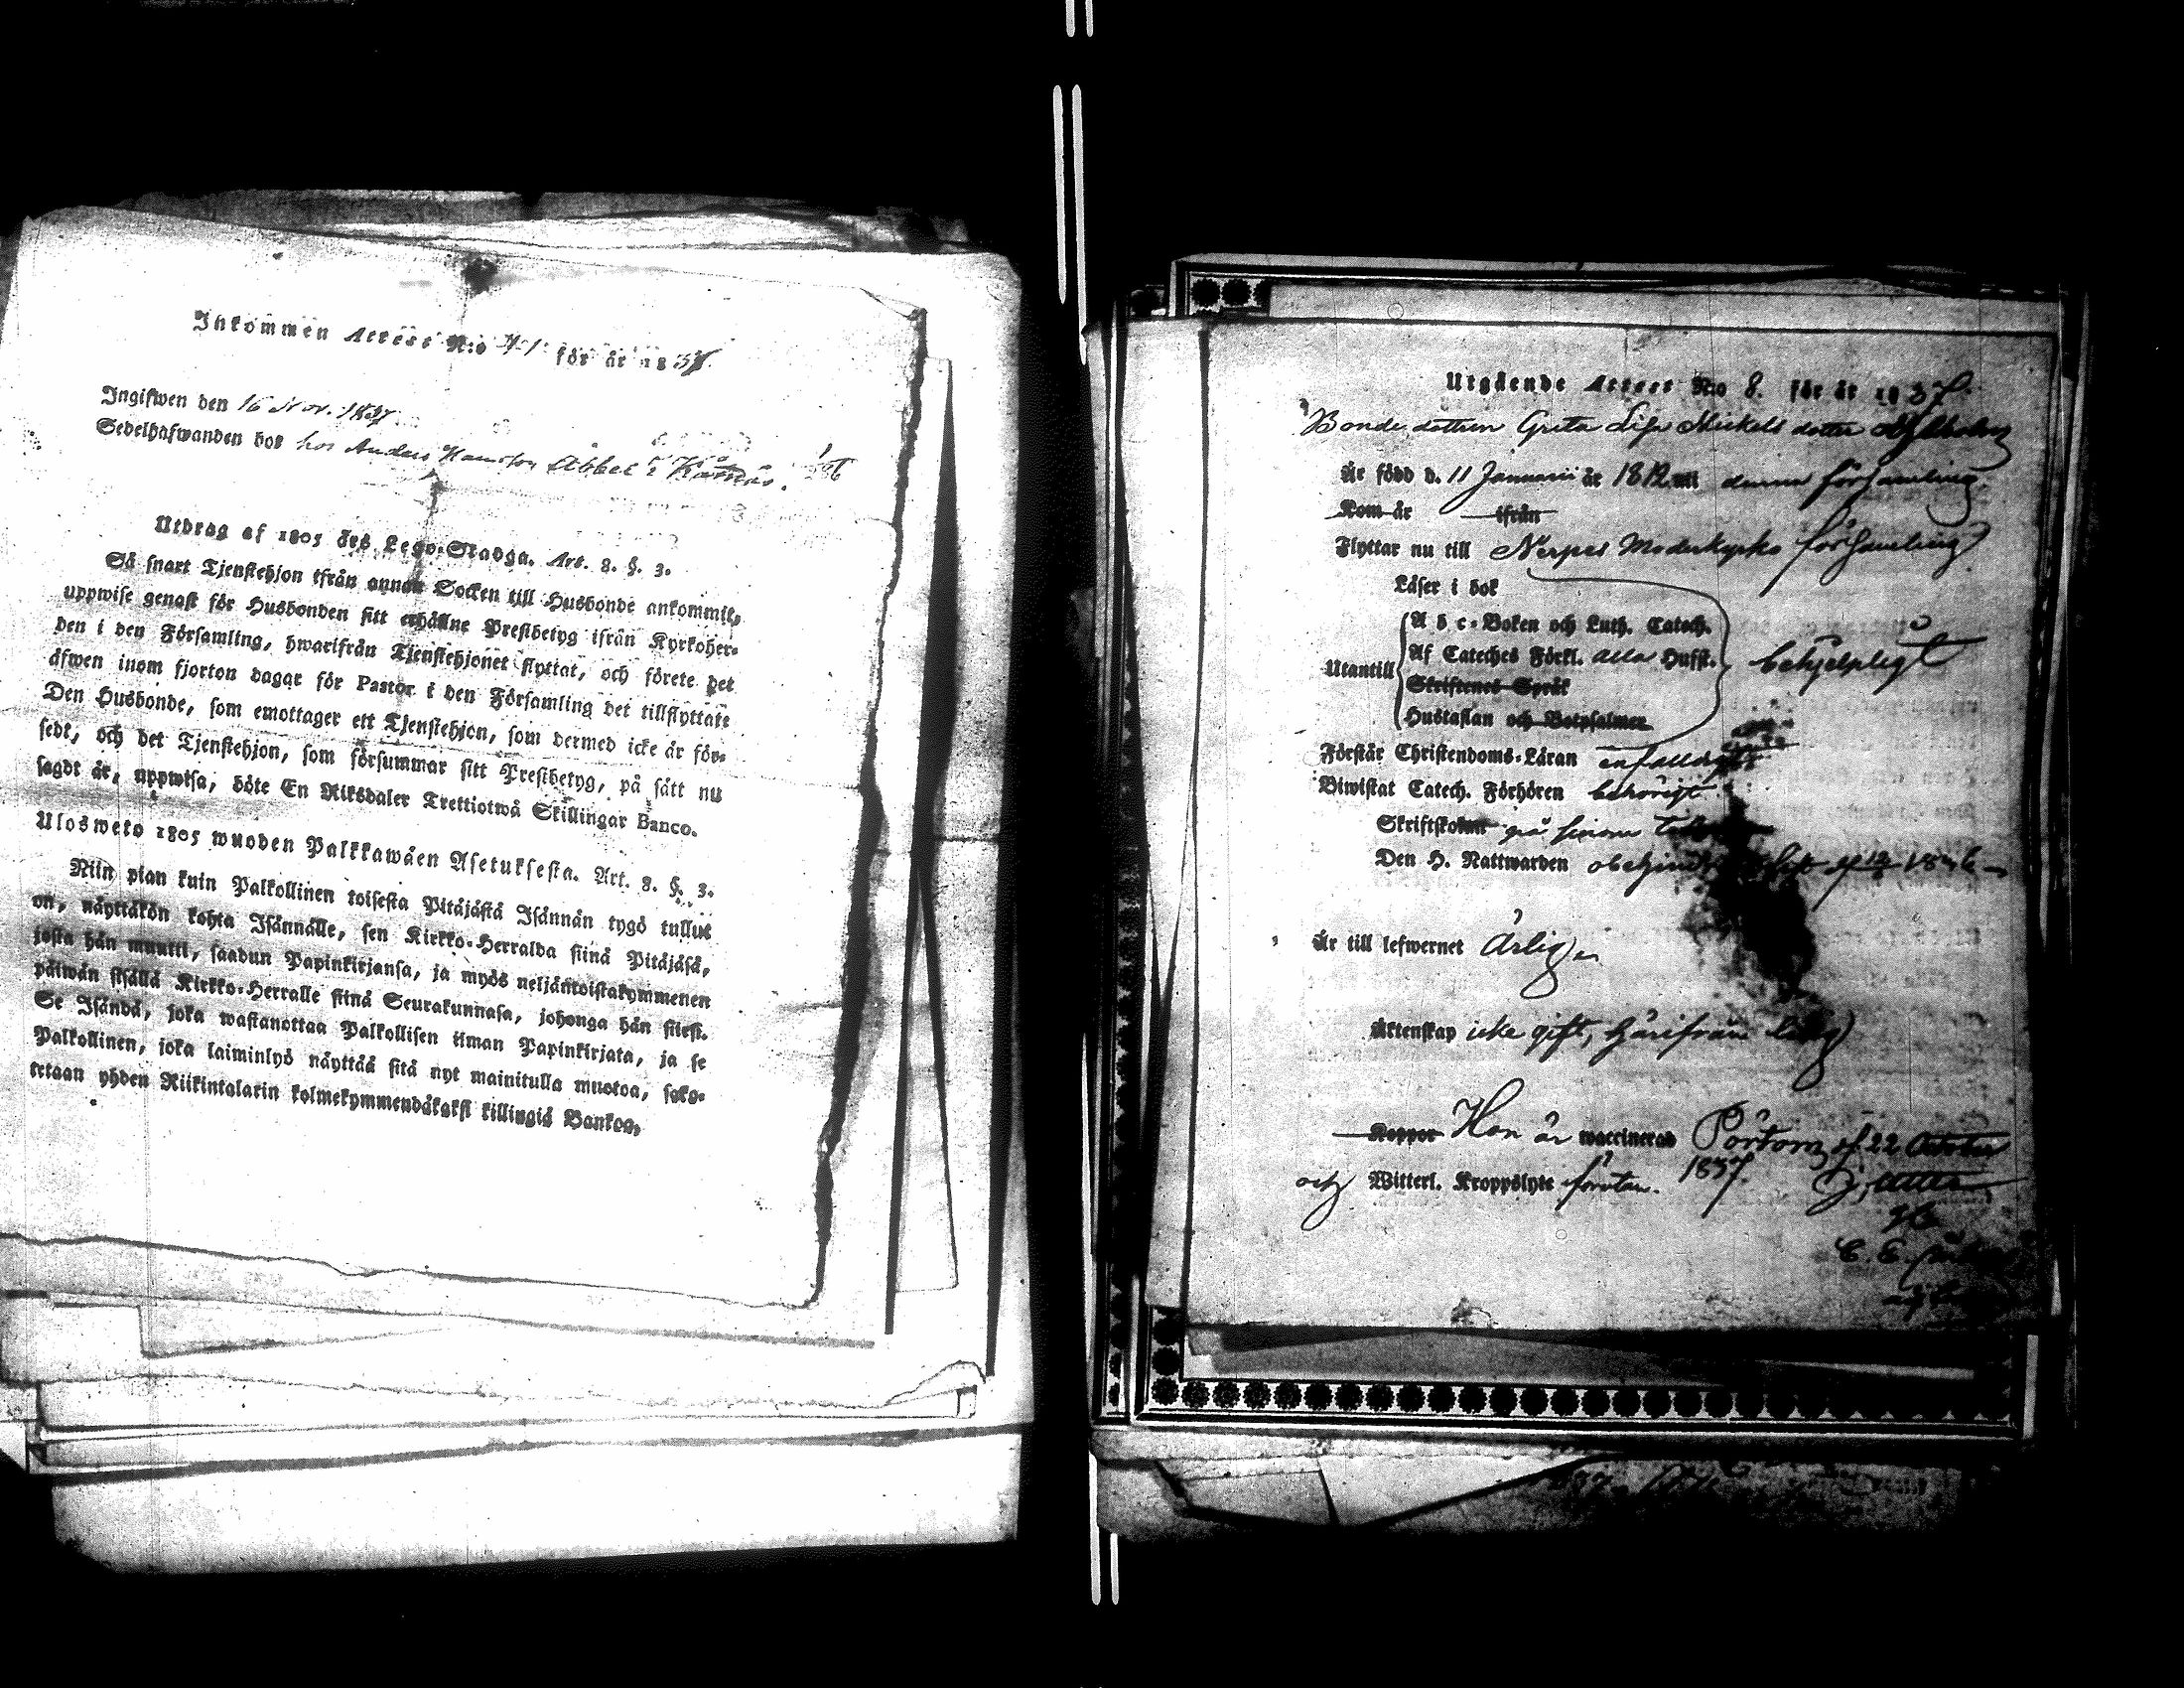 Inkommen Attest N:o 41 för år 1837.
Ingifwen den 16 Nov. 1837.
Sedelhafwanden bor hos Anders Abbel i
Utdrag af 1805 års Lego-Stadga. Art. 8. §. 3.
Så snart Tjenstehjon ifrån annan Socken till Husbonde ankommit,
uppwise genast för Husbonden sitt erhållne Prestbetyg ifrån Kyrkoher-
den i den Församling, hwarifrån Tjenstehjonet flyttat, och förete det
äfwen inom fjorton dagar för Pastor i den Församling det tillflyttate
Den Husbonde, som emottager ett Tjenstehjon, som dermed icke är för-
sedt, och det Tjenstehjon, som försummar sitt Prestbetyg, på sätt nu
sagdt är, uppwisa, böte En Riksdaler Trettiotwå Skillingar Banco.
Ulosweto 1805 wuoden Palkkawäen Asetuksesta. Art. 8. §. 3.
Niin pian kuin Palkollinen toisesta Pitäjästä Isännän tygö tullut
on, näyttäkön kohta Isännälle, sen Kirkko-Herralda siinä Pitäjäsä,
josta hän muutti, saadun Papinkirjansa, ja myös neljäntoistakymmenen
päiwän sisällä Kirkko-Herralle siinä Seurakunnasa, johonga hän siirsi.
Se Isändä, joka wastanottaa Palkollisen ilman Papinkirjata, ja se
Palkollinen, joka laiminlyö näyttää sitä nyt mainitulla muotoa, sako-
tetaan yhden Riikintalarin kolmekymmendäkaksi killingiä Bankos,
Utgående Attest N:o 8. för år 1837.
Bonde dottren Greta Lisa Mickels dotter
Är född d. 11 Januarii år 1812 uti denna församling.
Kom år ifrån
Flyttar nu till Nerpes Moderkyrko församling
Läser i bok
A b c-Boken och Luth. Catech.
Af Cateches Förkl. alla Hufst.
Utantill behjelpligt
Skriftenes Språk
Hustaflan och Botpsalmer
Förstår Christendoms-Läran enfaldigt
Biwistat Catech. Förhören behörigt
Skriftskolan på sinom
Den H. Nattwarden
Är till lefwernet Ärlig
Äktenskap icke gift, härifrån ledig
Koppor Hon är waccinerad Pörtom d. 22 October
och Witterl. Kroppslyte förutan. 1837.
C. E.